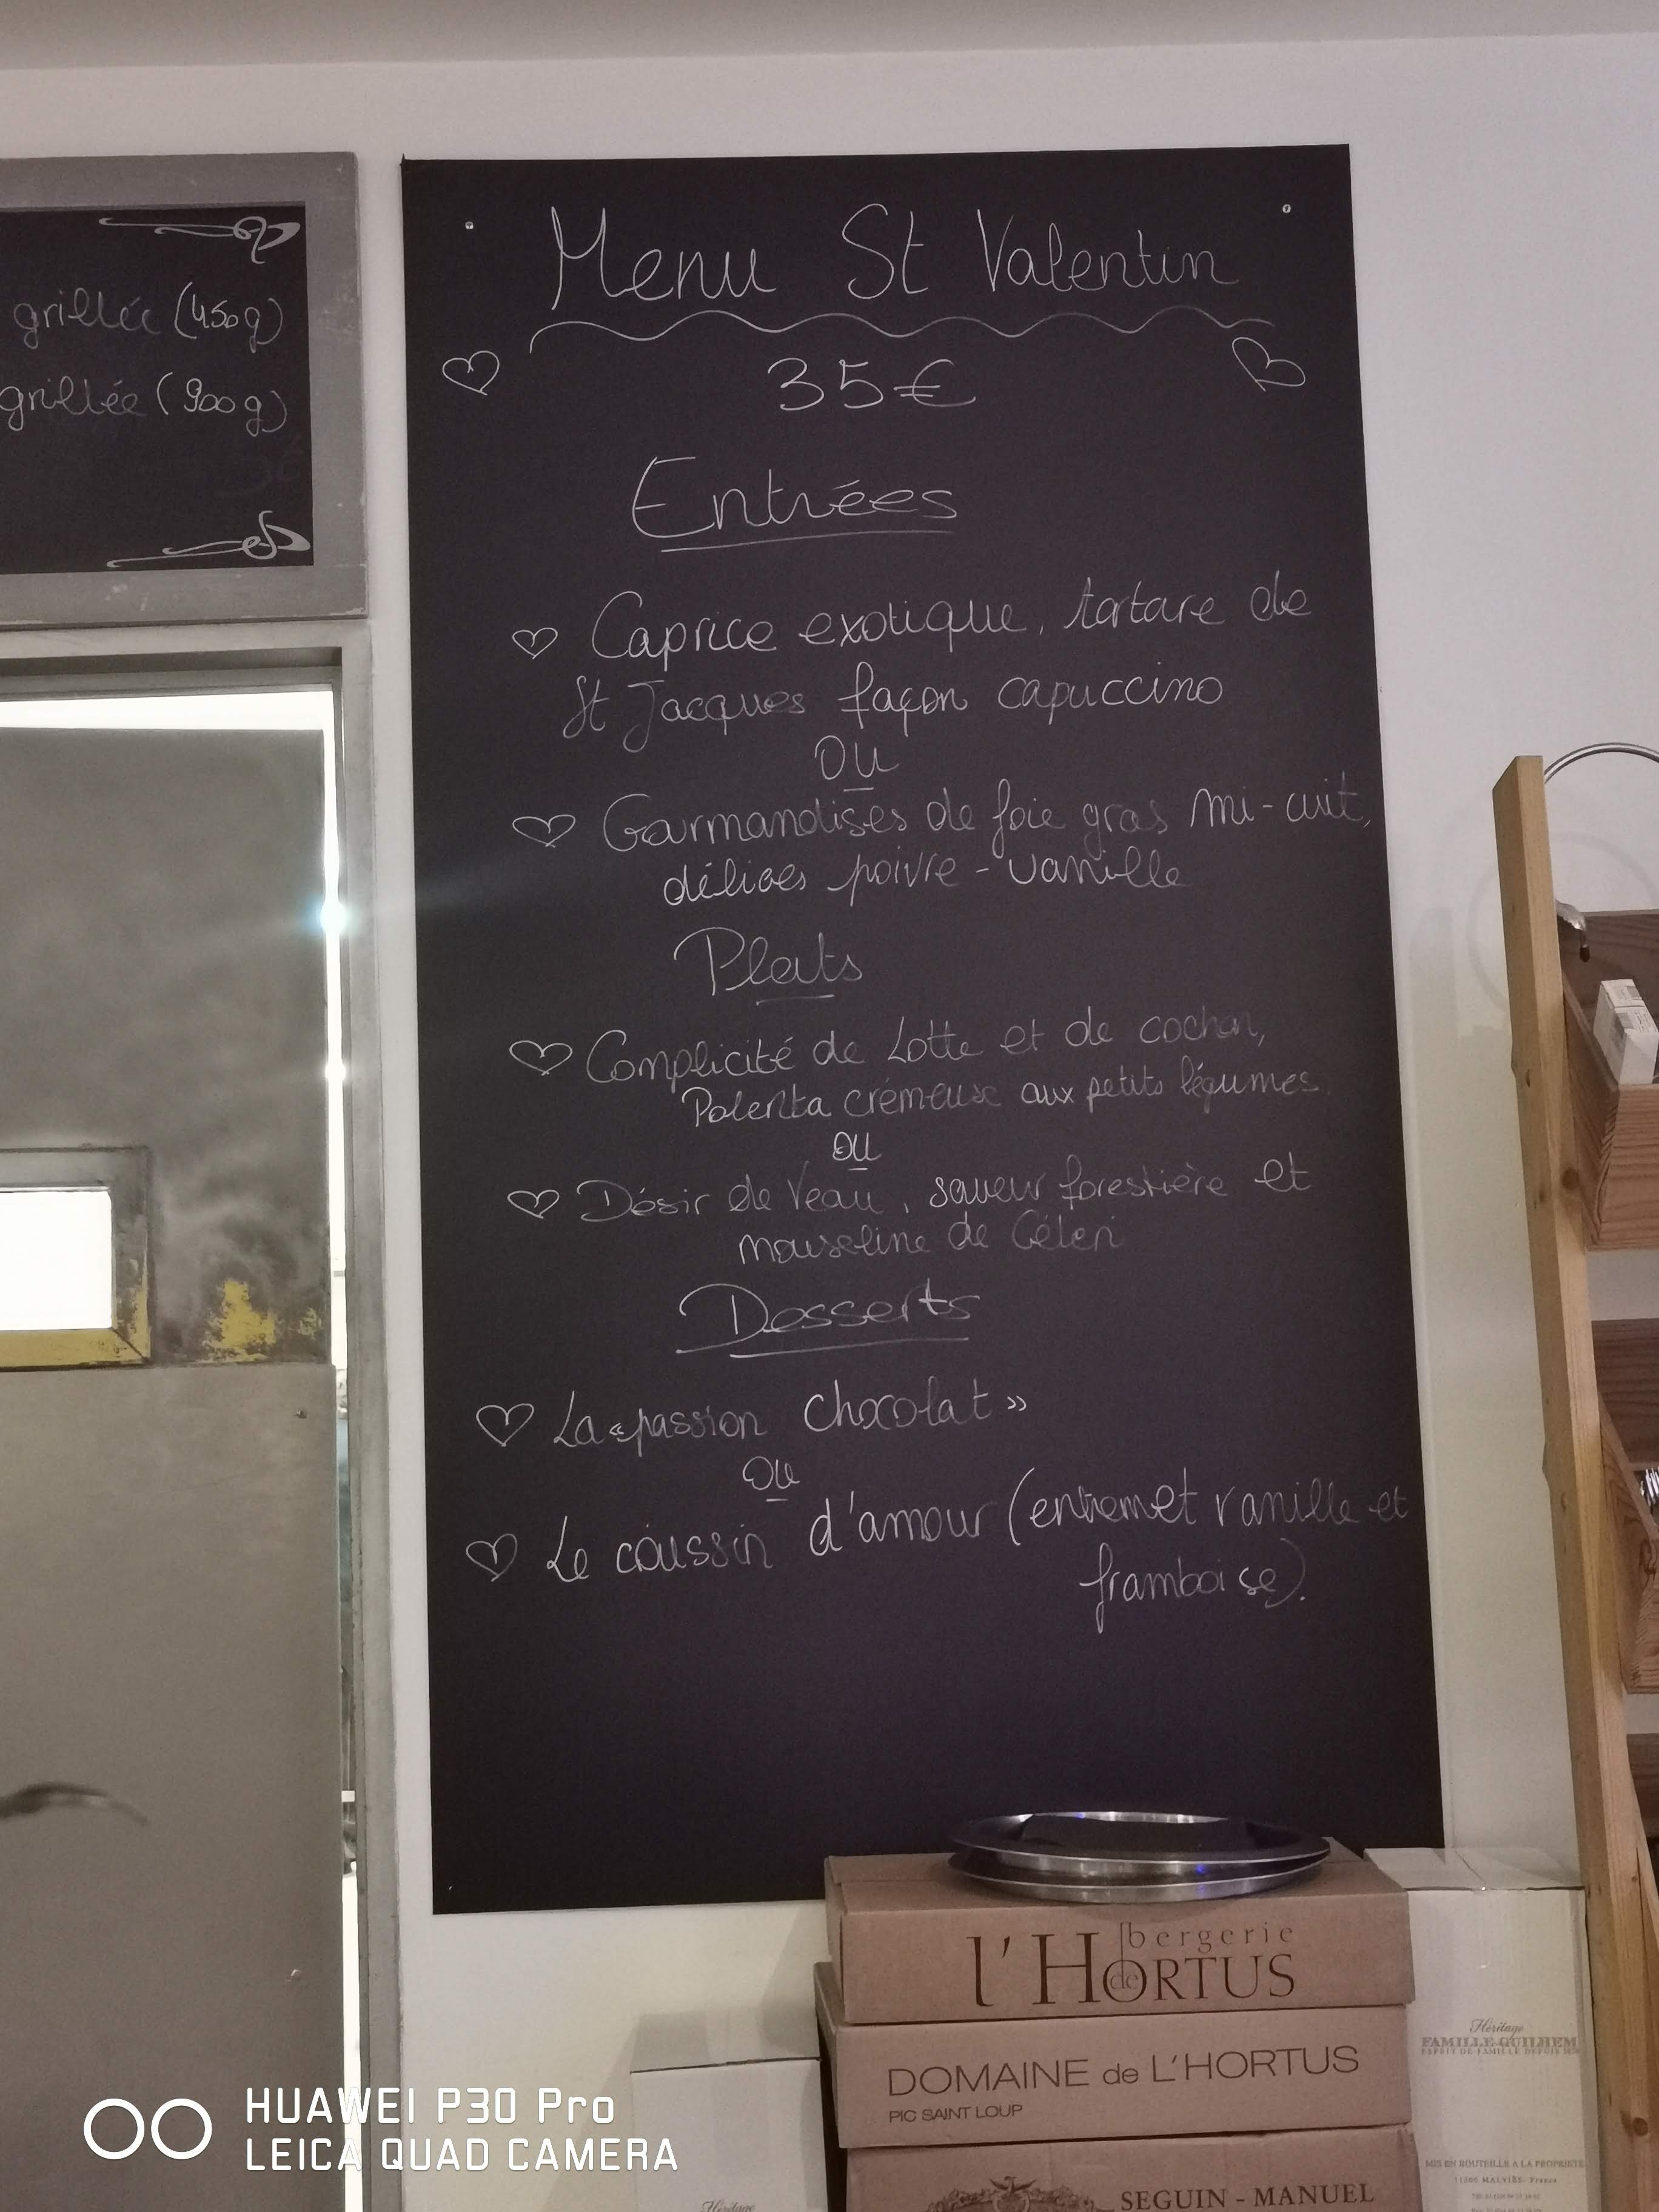 grillée (450g)
grillée (900g)
Menu St Valentin
35€
Entrées
Caprice exotique, tartare de
St Jacques façon capuccino
OU
Gourmandises de foie gras mi-cuit,
délices poivre-vanille
Plats
Complicité de Lotte et de cochon,
Polenta crémeuse aux petits légumes.
OU
Désir de Veau, saveur forestière et
mousseline de Céleri
Desserts
La «passion Chocolat»
OU
Le coussin d'amour (entremet vanille et
framboise).
bergerie
de
l'HORTUS
DOMAINE de L'HORTUS
PIC SAINT LOUP
SEGUIN - MANUEL
Héritage
FAMILLE GUILHEM
ESPRIT DE FAMILLE DEPUIS
MIS EN BOUTEILLE A LA PROPRIETE
MALVIES France
Héritage
HUAWEI P30 Pro
LEICA QUAD CAMERA